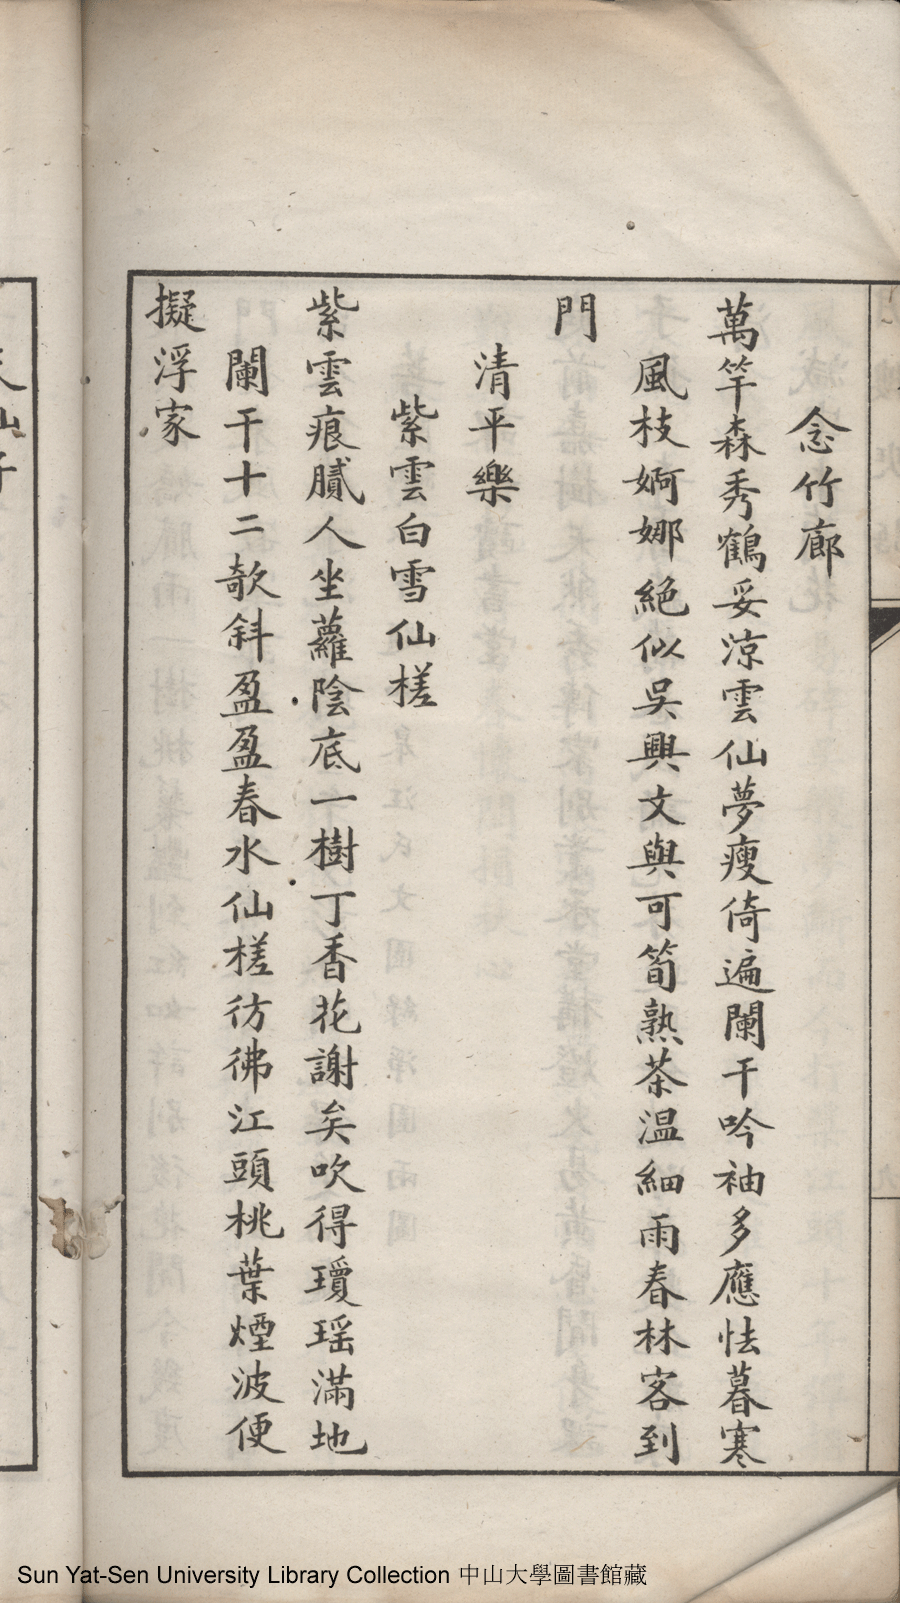 念竹廊
萬竿森秀鶴妥涼雲仙夢瘦倚遍闌干吟袖多應怯暮寒
風枝婀娜絕似吳興文與可筍熟茶温細雨春林客到
門
清平樂
紫雲白雪仙槎
紫雲痕膩人坐蘿陰底一樹丁香花謝矣吹得瓊瑶滿地
闌干十二欹斜盈盈春水仙槎彷彿江頭桃葉煙波便
擬浮家
天仙子
Sun Yat-Sen University Library Collection 中山大學圖書館藏